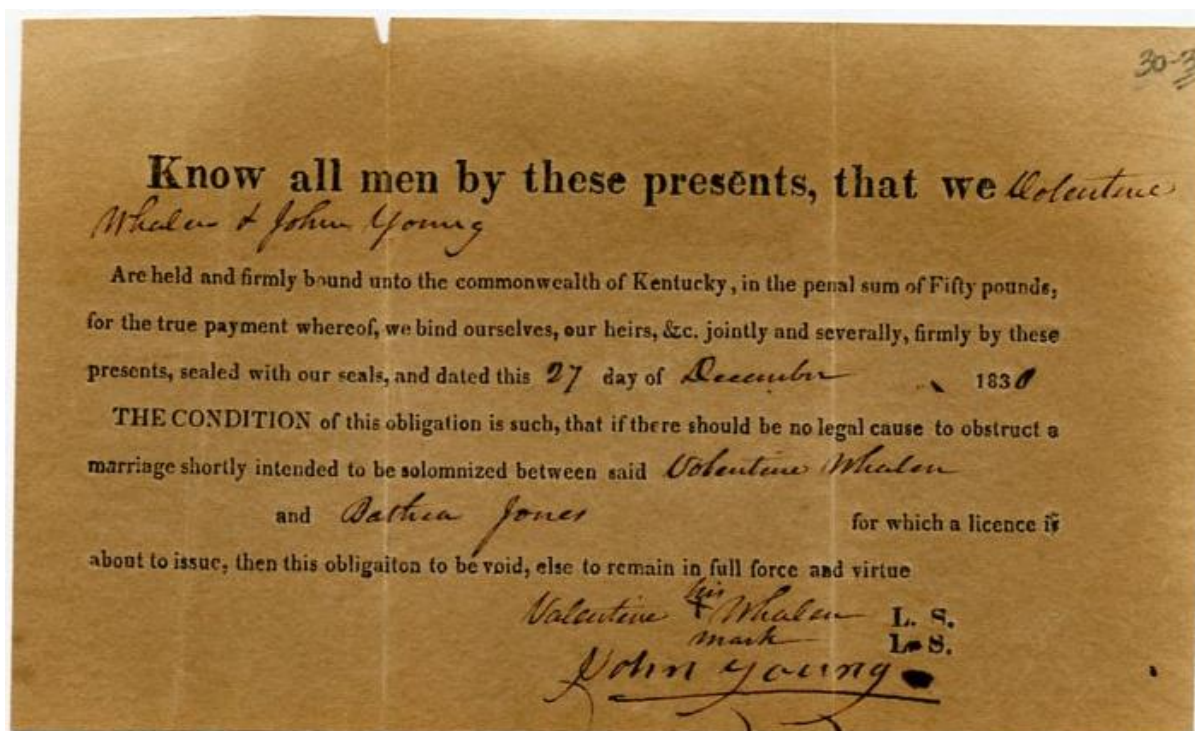 30-3
Know all men by these presents, that we Volentine
Whalen & John Young
Are held and firmly bound unto the commonwealth of Kentucky, in the penal sum of Fifty pounds,
for the true payment whereof, we bind ourselves, our heirs, &c. jointly and severally, firmly by these
presents, sealed with our seals, and dated this 27 day of December 1830
THE CONDITION of this obligation is such, that if there should be no legal cause to obstruct a
marriage shortly intended to be solomnized between said Volentine Whalen
and Jones for which a licence is
about to issue, then this obligaiton to be void, else to remain in full force and virtue
his
Valentine + Whalen L. S.
mark L. S.
John Young